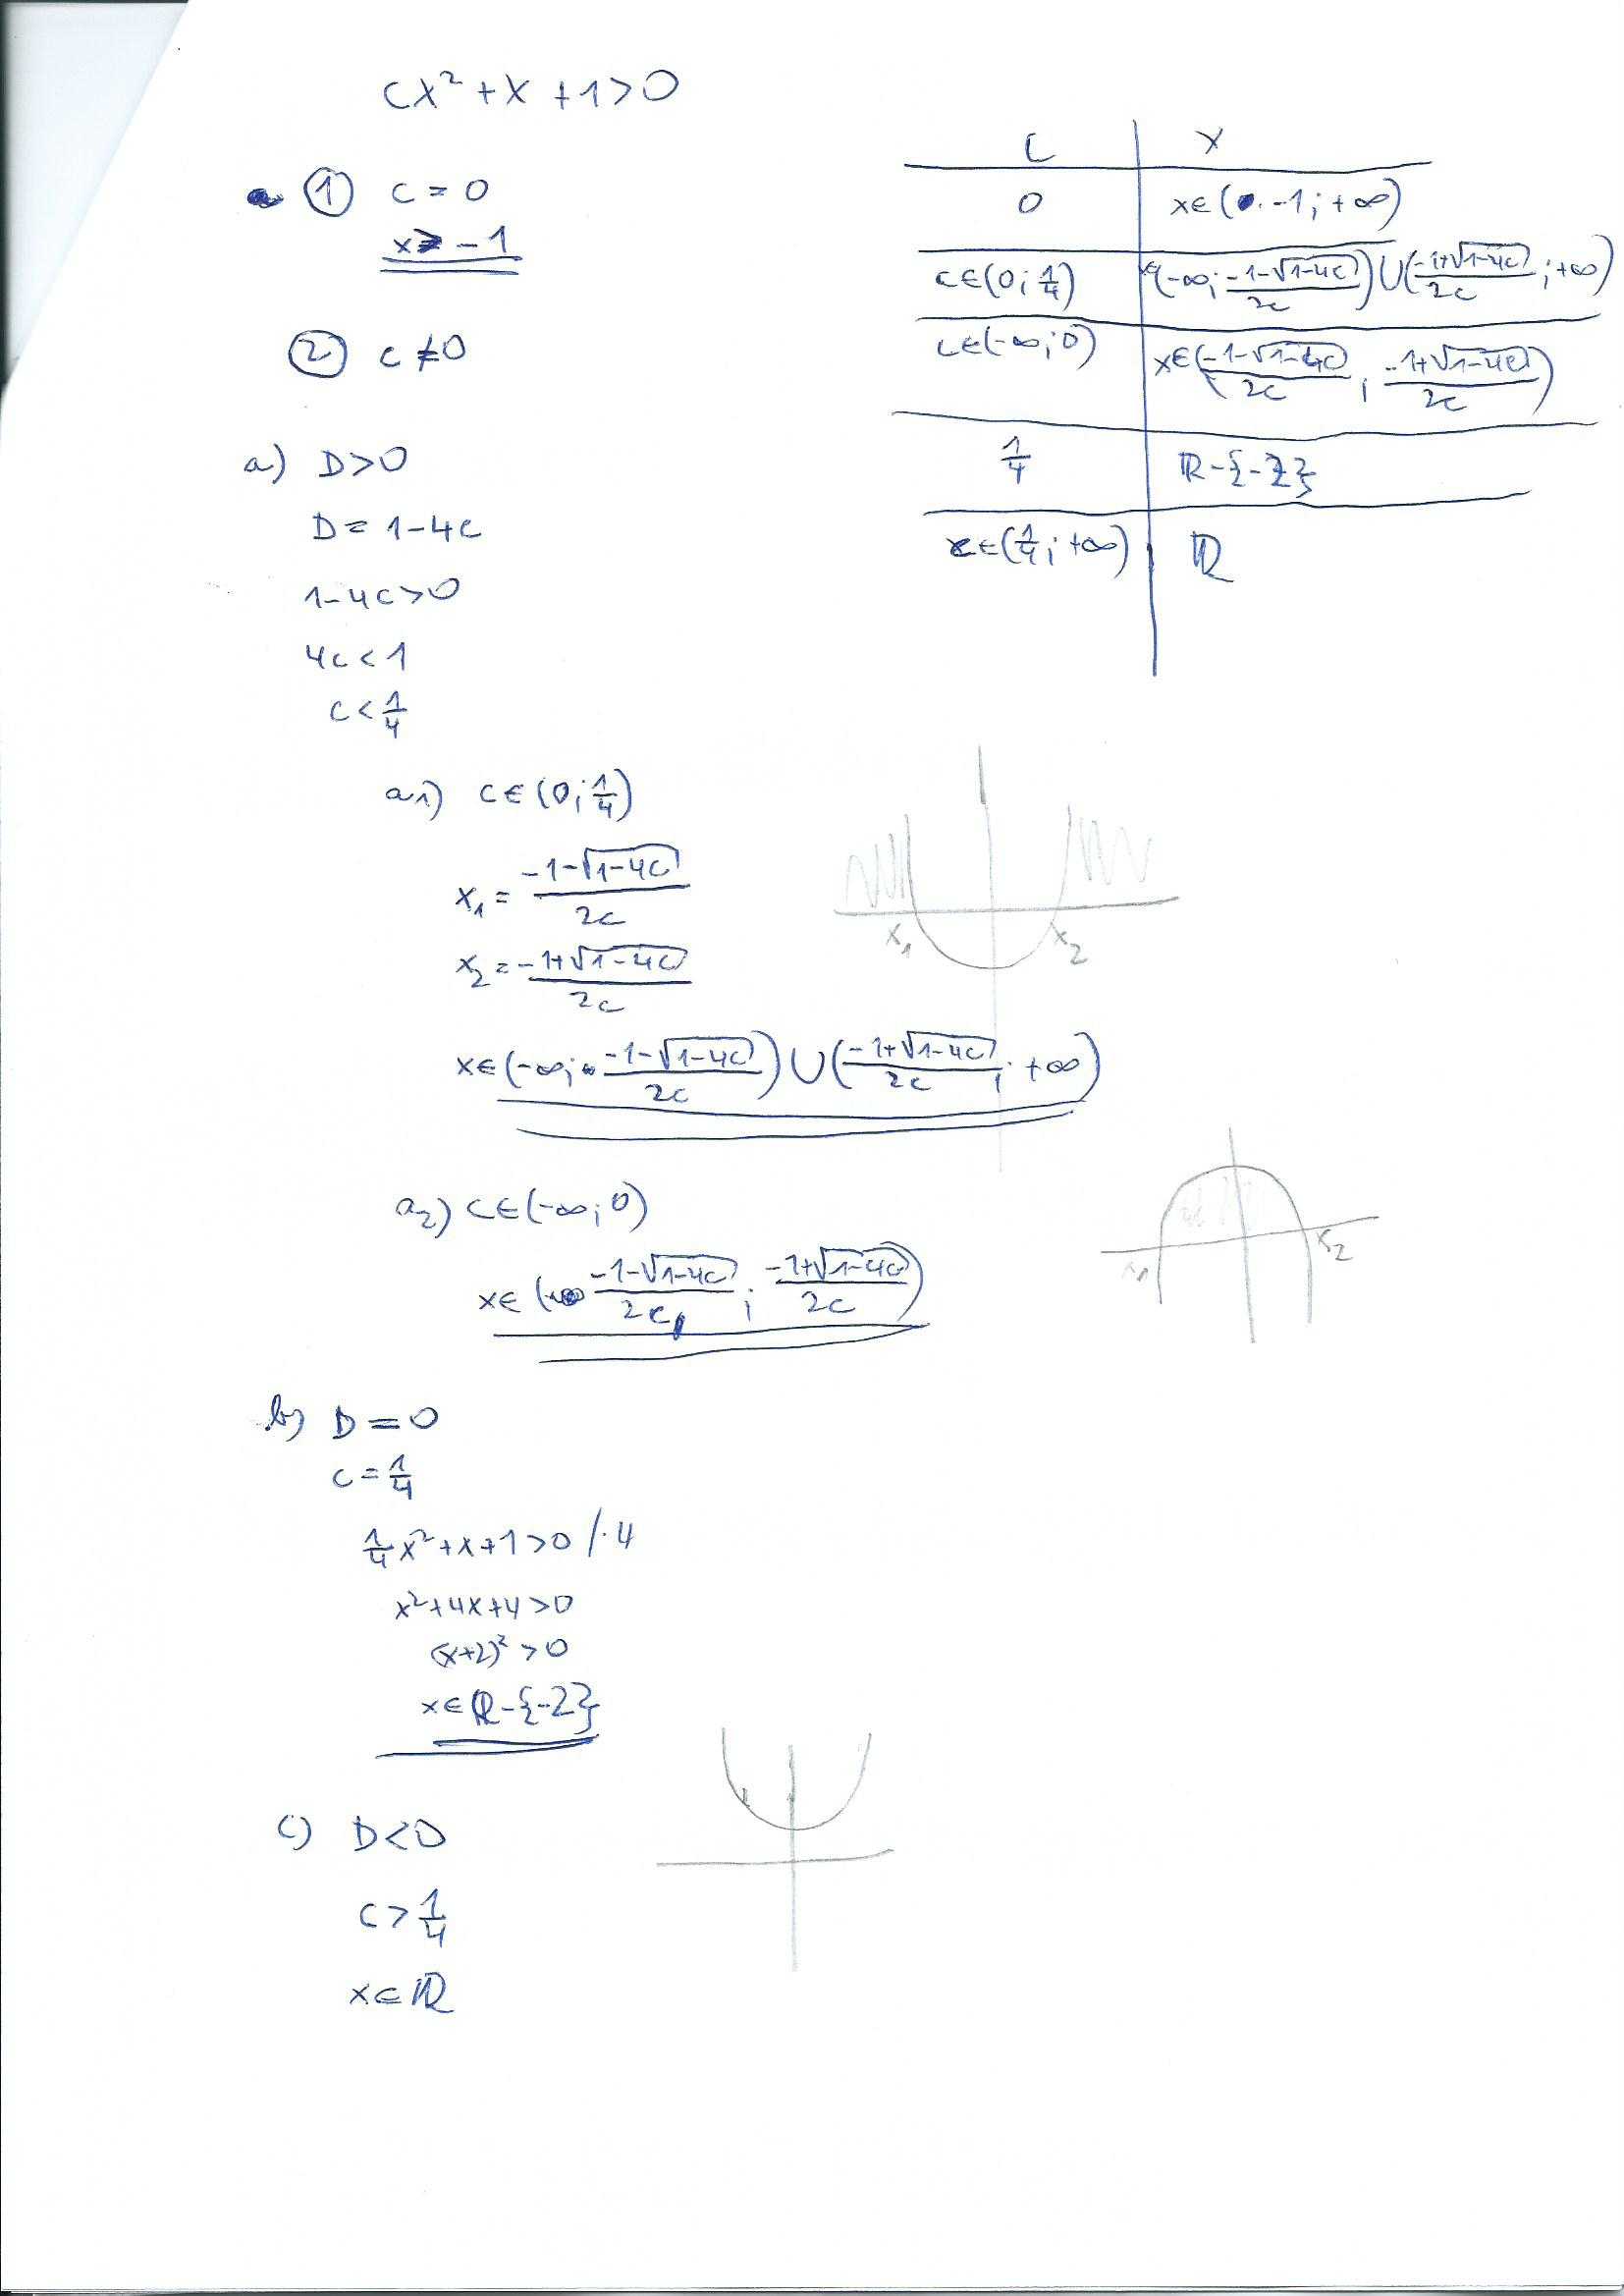 cx² + x + 1 > 0
① c = 0
x > -1
② c ≠ 0
a) D > 0
D = 1 - 4c
1 - 4c > 0
4c < 1
c < 1/4
a1) c ∈ (0; 1/4)
x₁ = (-1 - √(1-4c))/2c
x₂ = (-1 + √(1-4c))/2c
x ∈ (-∞; (-1 - √(1-4c))/2c) ∪ ((-1 + √(1-4c))/2c; +∞)
a2) c ∈ (-∞; 0)
x ∈ ((-1 - √(1-4c))/2c; (-1 + √(1-4c))/2c)
b) D = 0
c = 1/4
1/4 x² + x + 1 > 0 /·4
x² + 4x + 4 > 0
(x+2)² > 0
x ∈ ℝ - {-2}
c) D < 0
c > 1/4
x ∈ ℝ
c x
0 x ∈ (-1; +∞)
c ∈ (0; 1/4) x ∈ (-∞; (-1 - √(1-4c))/2c) ∪ ((-1 + √(1-4c))/2c; +∞)
c ∈ (-∞; 0) x ∈ ((-1 - √(1-4c))/2c; (-1 + √(1-4c))/2c)
1/4 ℝ - {-2}
c ∈ (1/4; +∞) ℝ
x₁ x₂
x₁ x₂